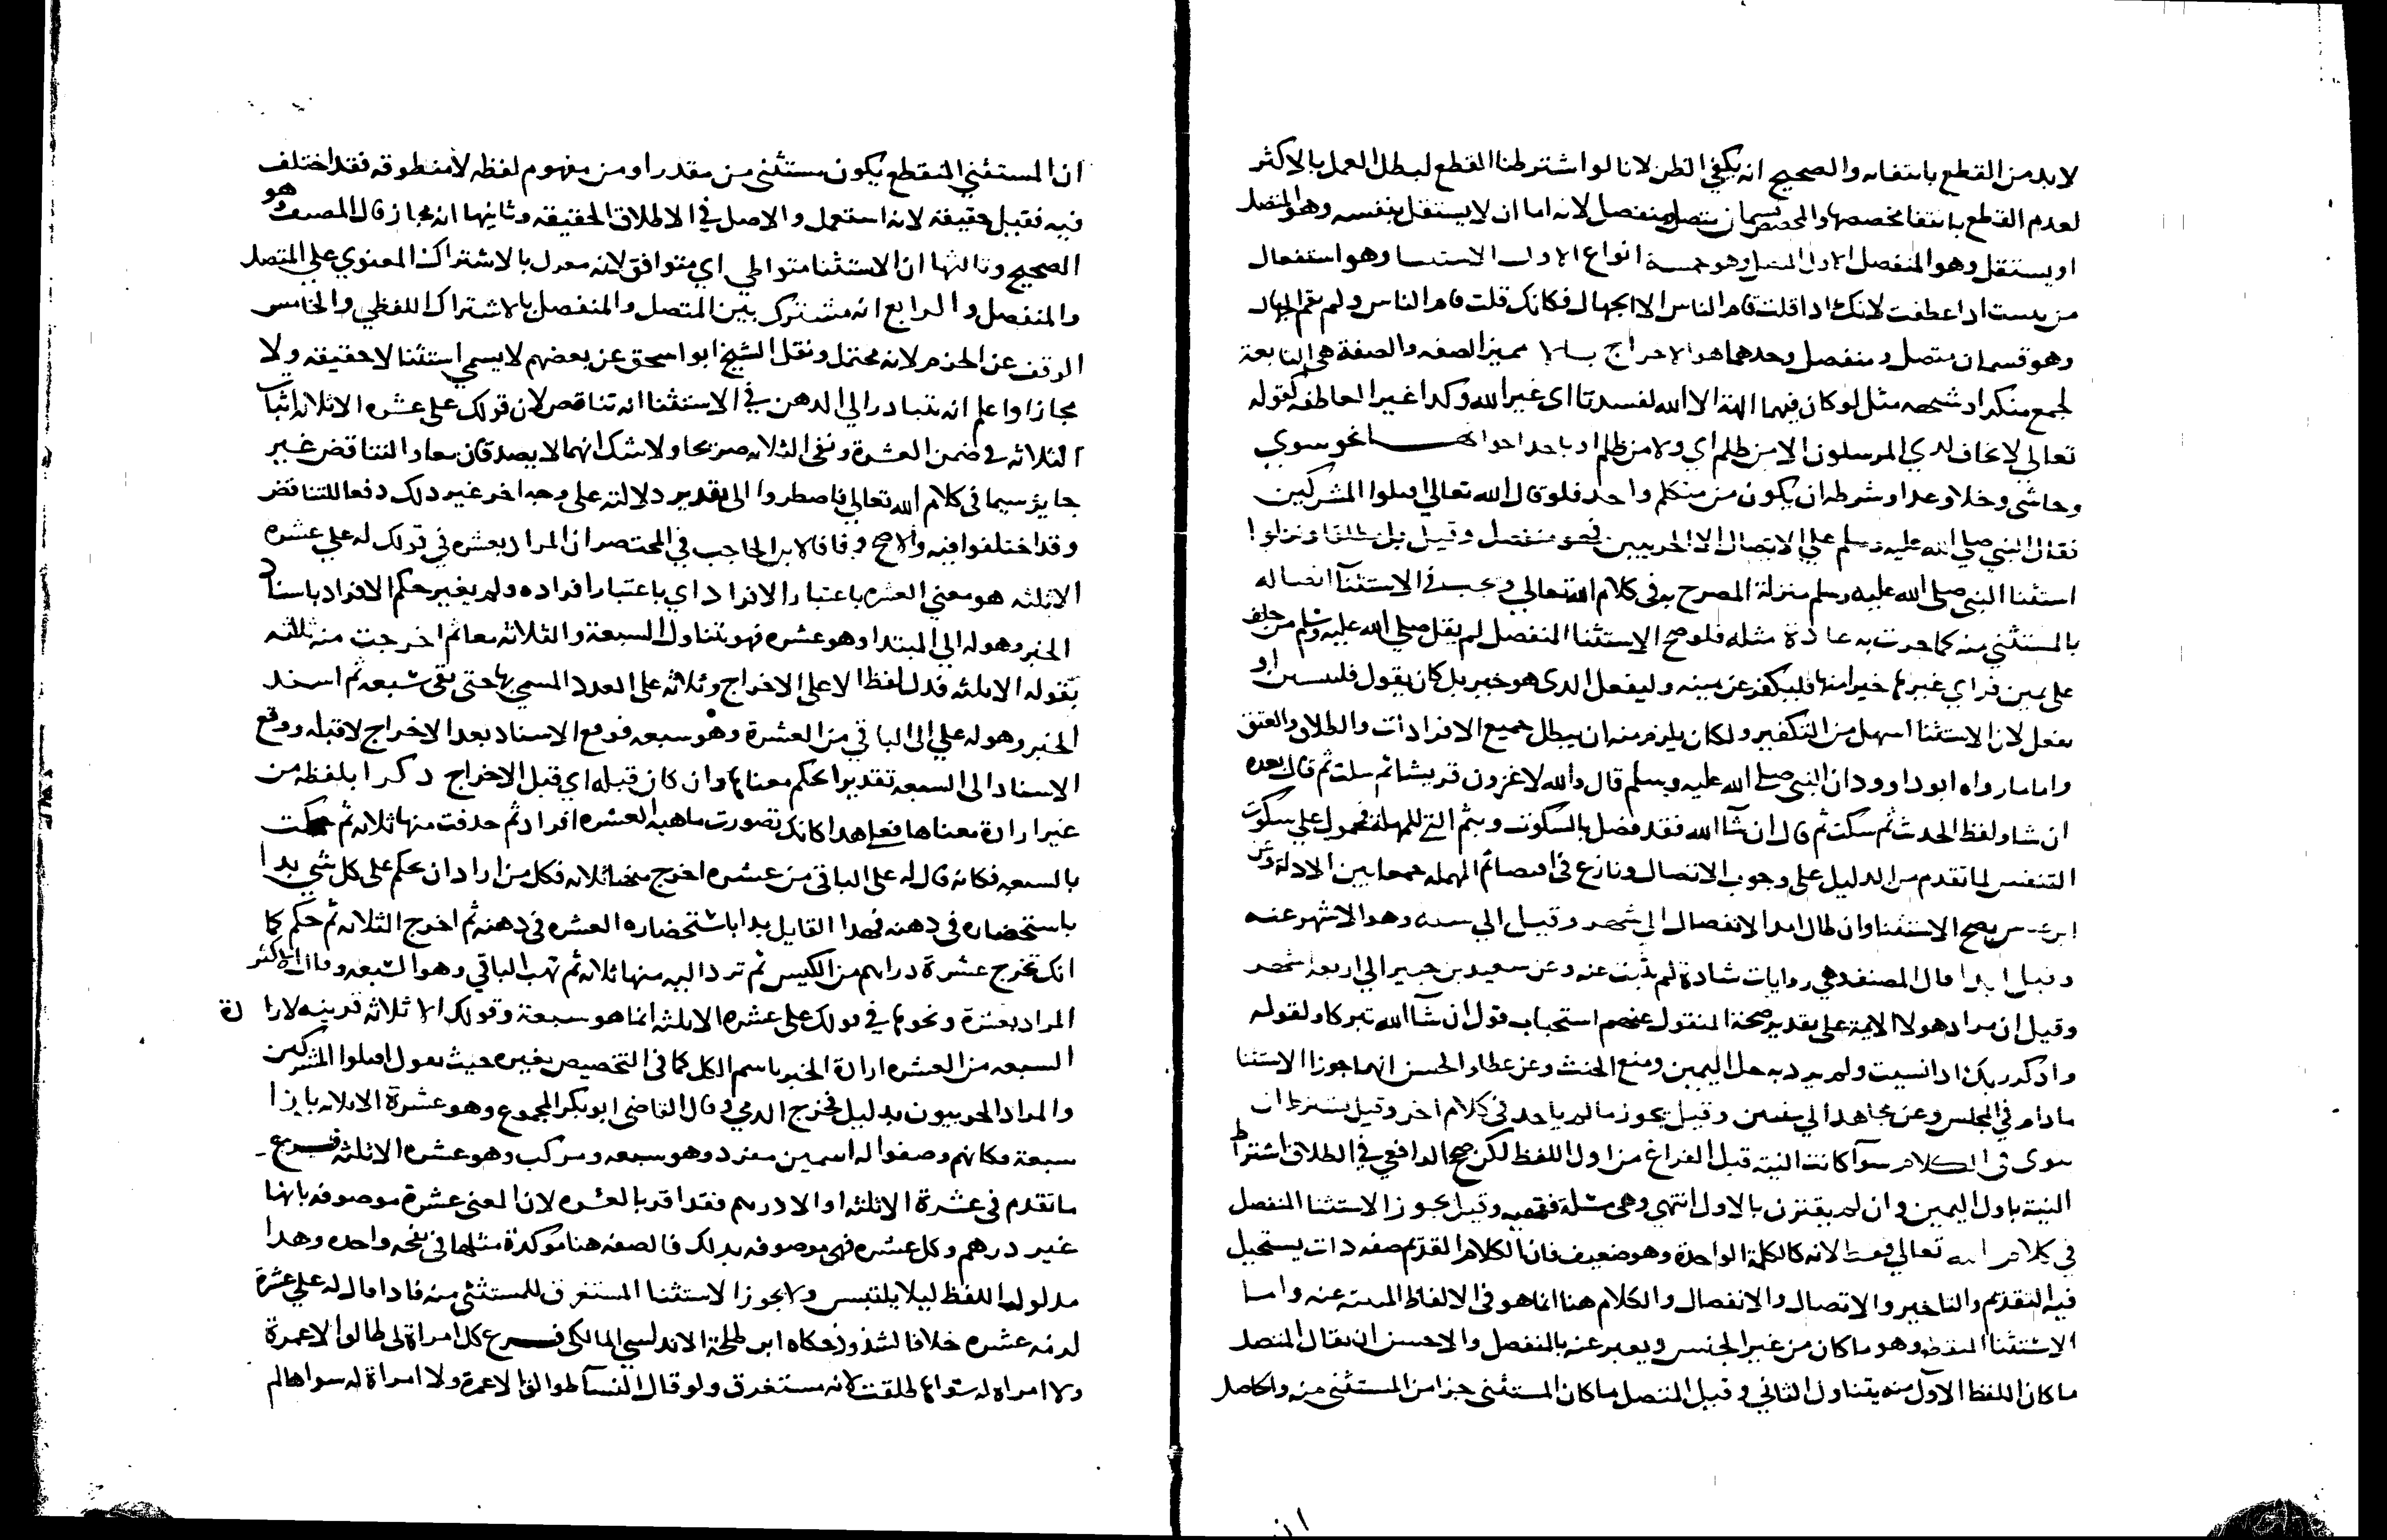 لابد من القطع بانتفائه والصحيح انه يكفي الظن لانا لو اشترطنا القطع لبطل العمل بالاكثر
لعدم القطع بانتفا مخصصها والمخصص قسمان متصل ومنفصل لانه اما ان لا يستقل بنفسه وهو المتصل
او يستقل وهو المنفصل الاول المتصل وهو خمسة انواع الاول الاستثنا وهو استفعال
من ثنيت ادا عطفت لانك ادا قلت قام الناس الا الجهال فكانك قلت قام الناس ولم يقم الجهال
وهو قسمان متصل ومنفصل وحدهما هو الاخراج بالا مميز الصفه والصفة هي التابعة
لجمع منكر او شبهه مثل لو كان فيهما الهة الا الله لفسدتا اى غير الله وكدا غير العاطفه كقوله
تعالي لا يخاف لدي المرسلون الا من ظلم اي ولا من ظلم او باحد اخواتها نحو سوي
وحاشى وخلا وعدا وشرطه ان يكون من متكلم واحد فلو قال الله تعالي اقتلوا المشركين
فقال النبي صلي الله عليه وسلم علي الاتصال الا الحربيين فهو منفصل وقيل بل مطلقا ونزلوا
استثنا النبي صلى الله عليه وسلم منزلة المصرح به فى كلام الله تعالي ويجب في الاستثنآ اتصاله
بالمستثني منه كما جرت به عادة مثله فلو صح الاستثنا المنفصل لم يقل صلي الله عليه وسلم من حلف
على يمين فراي غيرها خيرا منها فليكفر عن يمينه وليفعل الدى هو خير بل كان يقول فليستثن او
يفعل لان الاستثنا اسهل من التكفير ولكان يلزم منه ان يبطل جميع الاقرارات والطلاق والعتق
واما ما رواه ابو داوود ان النبي صلى الله عليه وسلم قال والله لاغزون قريشا ثم سكت ثم قال بعده
ان شا ولفظ الحدث ثم سكت ثم قال ان شآ الله فقد فصل بالسكوت وبثم التي للمهلة فمحمول علي سكوت
التنفس لما تقدم من الدليل على وجوب الاتصال ونازع في اقتصا ثم المهمله جمعا بين الادلة وعن
ابن عباس يصح الاستثنا وان طال امد الانفصال الي شهر وقيل الي سنه وهو الاشهر عنه
وقيل ابدا قال المصنف وهي روايات شادة لم يثبت عنه وعن سعيد بن جبير الي اربعة شهر
وقيل ان مراد هولا الايمة على تقدير صحة المنقول عنهم استحباب قول ان شآ الله تبركا ولقوله
وادكر ربك ادا نسيت ولم يرد به حل اليمين ومنع الحنث وعن عطا والحسن انهما جوزا الاستثنا
ما دام في المجلس وعن مجاهد الي سنتين وقيل يجوز ما لم ياخد في كلام اخر وقيل يشترط ان
ينوى في الكلام سوآ كانت النية قبل الفراغ من اول اللفظ لكن صحح الرافعي في الطلاق اشتراط
النية باول اليمين وان لم يقترن بالاول انتهي وهى مسئلة فقهيه وقيل يجوز الاستثنا المنفصل
في كلام الله تعالي فقط لانه كالكلمة الواحدة وهو ضعيف فان الكلام القديم صفه دات يستحيل
فيه التقديم والتاخير والاتصال والانفصال والكلام هنا انما هو فى الالفاظ المبينه عنه واما
الاستثنا المنقطع وهو ما كان من غير الجنس ويعبر عنه بالمنفصل والاحسن ان يقال المتصل
ما كان اللفظ الاول منه يتناول الثاني وقيل المتصل ما كان المستثني جزا من المستثني منه والحاصل
ان
ان المستثني المنقطع يكون مستثنى من مقدر او من مفهوم لفظه لا منطوقه فقد اختلف
فيه فقيل حقيقة لانه استعمل والاصل في الاطلاق الحقيقه وثانيها انه مجاز قال المصنف وهو
الصحيح وثالثها ان الاستثنا متواطي اي متوافق لانه مقول بالاشتراك المعنوي علي المتصل
والمنفصل والرابع انه مشترك بين المتصل والمنفصل بالاشتراك اللفظي والخامس
الوقف عن الجزم لانه محتمل ونقل الشيخ ابو اسحق عن بعضهم لا يسمي استثنا لا حقيقه ولا
مجازا واعلم انه يتبادر الي الدهن في الاستثنا انه تناقص لان قولك علي عشره الا ثلاثه اثبات
الثلاثه في ضمن العشرة ونفى الثلاثه صريحا ولا شك انهما لا يصدقان معا والتناقض غير
جايز سيما فى كلام الله تعالي فاصطروا الى تقدير دلالته على وجه اخر غير دلك دفعا للتناقض
وقد اختلفوا فيه والاصح وفاقا لابن الحاجب في المختصر ان المراد بعشره في قولك له علي عشره
الا ثلثه هو معني العشره باعتبار الافراد اي باعتبار افراده ولم يغير حكم الافراد باسناد
الخبر وهو له الي المبتدا وهو عشره فهو يتناول السبعة والثلاثه معا ثم اخرجت منه ثلاثه
بقوله الا ثلثه فدل لفظ الا على الاخراج وثلاثه على العدد المسمي بها حتى بقى سبعه ثم اسند
الخبر وهو له علي الي الباقي من العشرة وهو سبعه فوقع الاسناد بعد الاخراج لا قبله ووقع
الاسناد الى السبعه تقديرا بحكم معناها وان كان قبله اي قبل الاخراج دكرا بلفظه من
غير ارادة معناها فعلى هدا كانك تصورت ماهية العشره افراد ثم حدفت منها ثلاثه ثم حكمت
بالسبعه فكانه قال له على الباقى من عشره اخرج منها ثلاثه فكل من اراد ان يحكم على كل شي بدا
باستحضاره فى دهنه فهدا القايل بدا باستحضاره العشره فى دهنه ثم اخرج الثلاثه ثم حكم كما
انك تخرج عشرة دراهم من الكيس ثم ترد اليه منها ثلاثه ثم تهب الباقي وهو السبعه وقال الاكثر
المراد بعشرة ونحوها في قولك على عشره الا ثلثه انما هو سبعة وقولك الا ثلاثه قرينه لارادة
السبعه من العشره ارادة الخبر باسم الكل كما فى التخصيص بغيره حيث يقول اقتلوا المشركين
والمراد الحربيون بدليل يخرج الدمي وقال القاضى ابو بكر المجموع وهو عشرة الا ثلاثه بازا
سبعة فكانهم وضعوا له اسمين مفرد وهو سبعه ومركب وهو عشره الا ثلثه فرع
ما تقدم فى عشرة الا ثلثه او الا درهم فقد اقر بالعشره لان المعنى عشرة موصوفه بانها
غير درهم وكل عشره فهي موصوفه بدلك فالصفه هنا موكدة مثلها فى نفخه واحده وهدا
مدلول اللفظ ليلا يلتبس ولا يجوز الاستثنا المستغرق للمستثنى منه فادا قال له علي عشرة
لزمه عشره خلافا لشذوذ حكاه ابن طلحة الاندلسي المالكى فرع كل امراة لى طالق الا عمرة
ولا امراه له سواها طلقت لانه مستغرق ولو قال النسآ طوالق الا عمرة ولا امراة له سواها لم